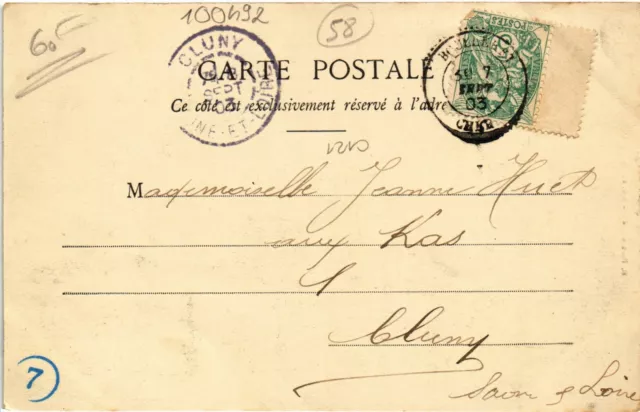 100492
58
60F
CLUNY
8
SEPT
03
NE-ET-LOIRE
POSTES
7
SEPT
03
CHER
CARTE POSTALE
Ce côté est exclusivement réservé à l'adre
Mademoiselle Jeanne Huet
aux Kas
Cluny
Saone & Loire
7